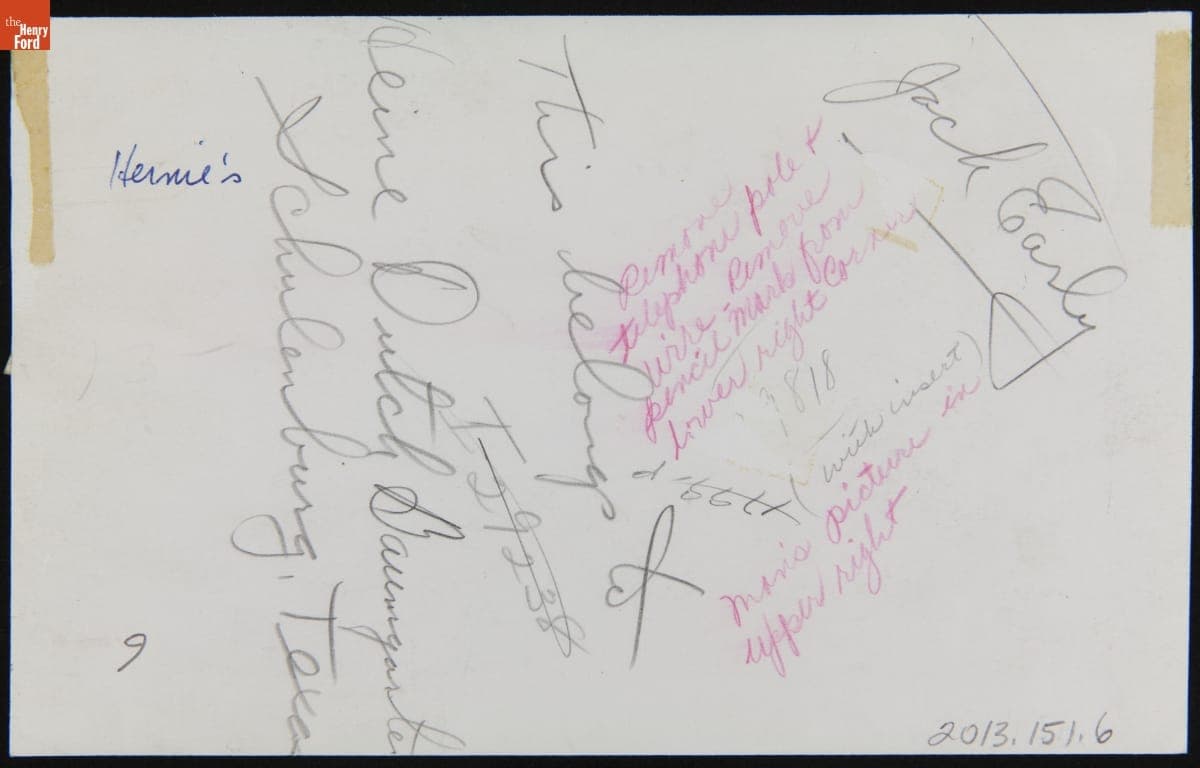 the
Henry
Ford
Jack Early
Hernie's
This belongs to
Heine Dutch Baumgarten
Schulenburg, Texas
Remove
telephone pole +
wire Remove
pencil mark from
lower right corner
9818
(with insert)
man's picture in
upper right
T59238
9
2013.151.6